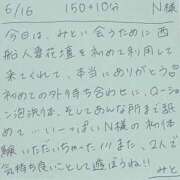 6/16 150+10分 N様
今日は、みとに会うために西
船人妻花壇を初めて利用して
来てくれて、本当にありがとう♡
初めての外待ち合わせに、Q-シ
ン泡洗体、そしてあんな所まで舐
めて…いーっぱいN様の初体
験いただいちゃった!!!また、2人で
気持ち良いことして遊ぼうね!!
みと